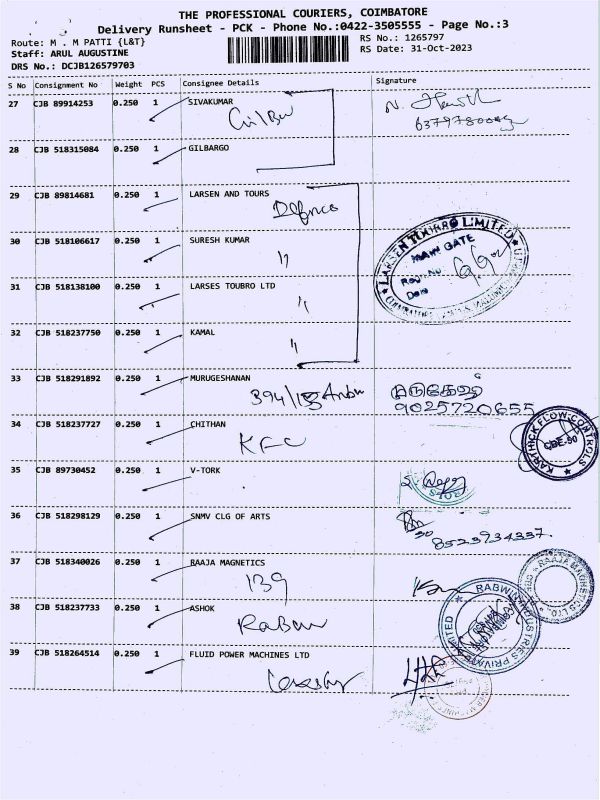 THE PROFESSIONAL COURIERS, COIMBATORE
Delivery Runsheet - PCK - Phone No.:0422-3505555 - Page No.:3
Route: M . M PATTI {L&T}
RS No.: 1265797
Staff: ARUL AUGUSTINE
RS Date: 31-Oct-2023
DRS No.: DCJB126579703
S No Consignment No Weight PCS Consignee Details Signature
27 CJB 89914253 0.250 1 SIVAKUMAR
28 CJB 518315084 0.250 1 GILBARGO
29 CJB 89814681 0.250 1 LARSEN AND TOURS
Defence
30 CJB 518106617 0.250 1 SURESH KUMAR
LARSEN TOUBRO LIMITED
MAIN GATE
31 CJB 518138100 0.250 1 LARSES TOUBRO LTD
Date
32 CJB 518237750 0.250 1 KAMAL
33 CJB 518291892 0.250 1 MURUGESHANAN
முருகேஷ்
9025720655
34 CJB 518237727 0.250 1 CHITHAN
KFC
KARTHICK FLOW CONTROLS
CBE-50
35 CJB 89730452 0.250 1 V-TORK
36 CJB 518298129 0.250 1 SNMV CLG OF ARTS
8523934337
37 CJB 518340026 0.250 1 RAAJA MAGNETICS
139
RAAJA MAGNETICS LTD
38 CJB 518237733 0.250 1 ASHOK
RABWIN INDUSTRIES PRIVATE LIMITED
39 CJB 518264514 0.250 1 FLUID POWER MACHINES LTD